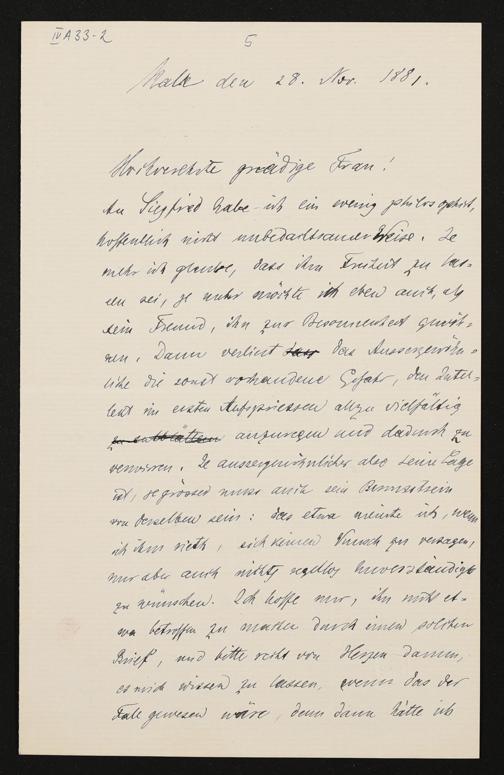 IV A 33-2
5
Halle den 28. Nov. 1881.
Hochverehrte gnädige Frau!
An Siegfried habe ich ein wenig philosophirt,
hoffentlich nicht unbedachtsamer Weise. Je
mehr ich glaube, dass ihm Freiheit zu las-
sen sei, je mehr möchte ich eben auch, als
sein Freund, ihn zur Besonnenheit gewöh-
nen. Dann verliert dass das Aussergewöhn-
liche die sonst vorhandene Gefahr, den Intel-
lect im ersten Aufspriessen allzu vielfältig
zu entblättern anzuregen und dadurch zu
verwirren. Je aussergewöhnlicher also seine Lage
ist, je grösser muss auch sein Bewusstsein
von derselben sein: das etwa meinte ich, wenn
ich ihm rieth, sich keinen Wunsch zu versagen,
nur aber auch nichts
zu wünschen. Ich hoffe nur, ihn nicht et-
wa betroffen zu machen durch einen solchen
Brief, und bitte recht von Herzen darum,
es mich wissen zu lassen, wenn das der
Fall gewesen wäre, denn dann hätte ich